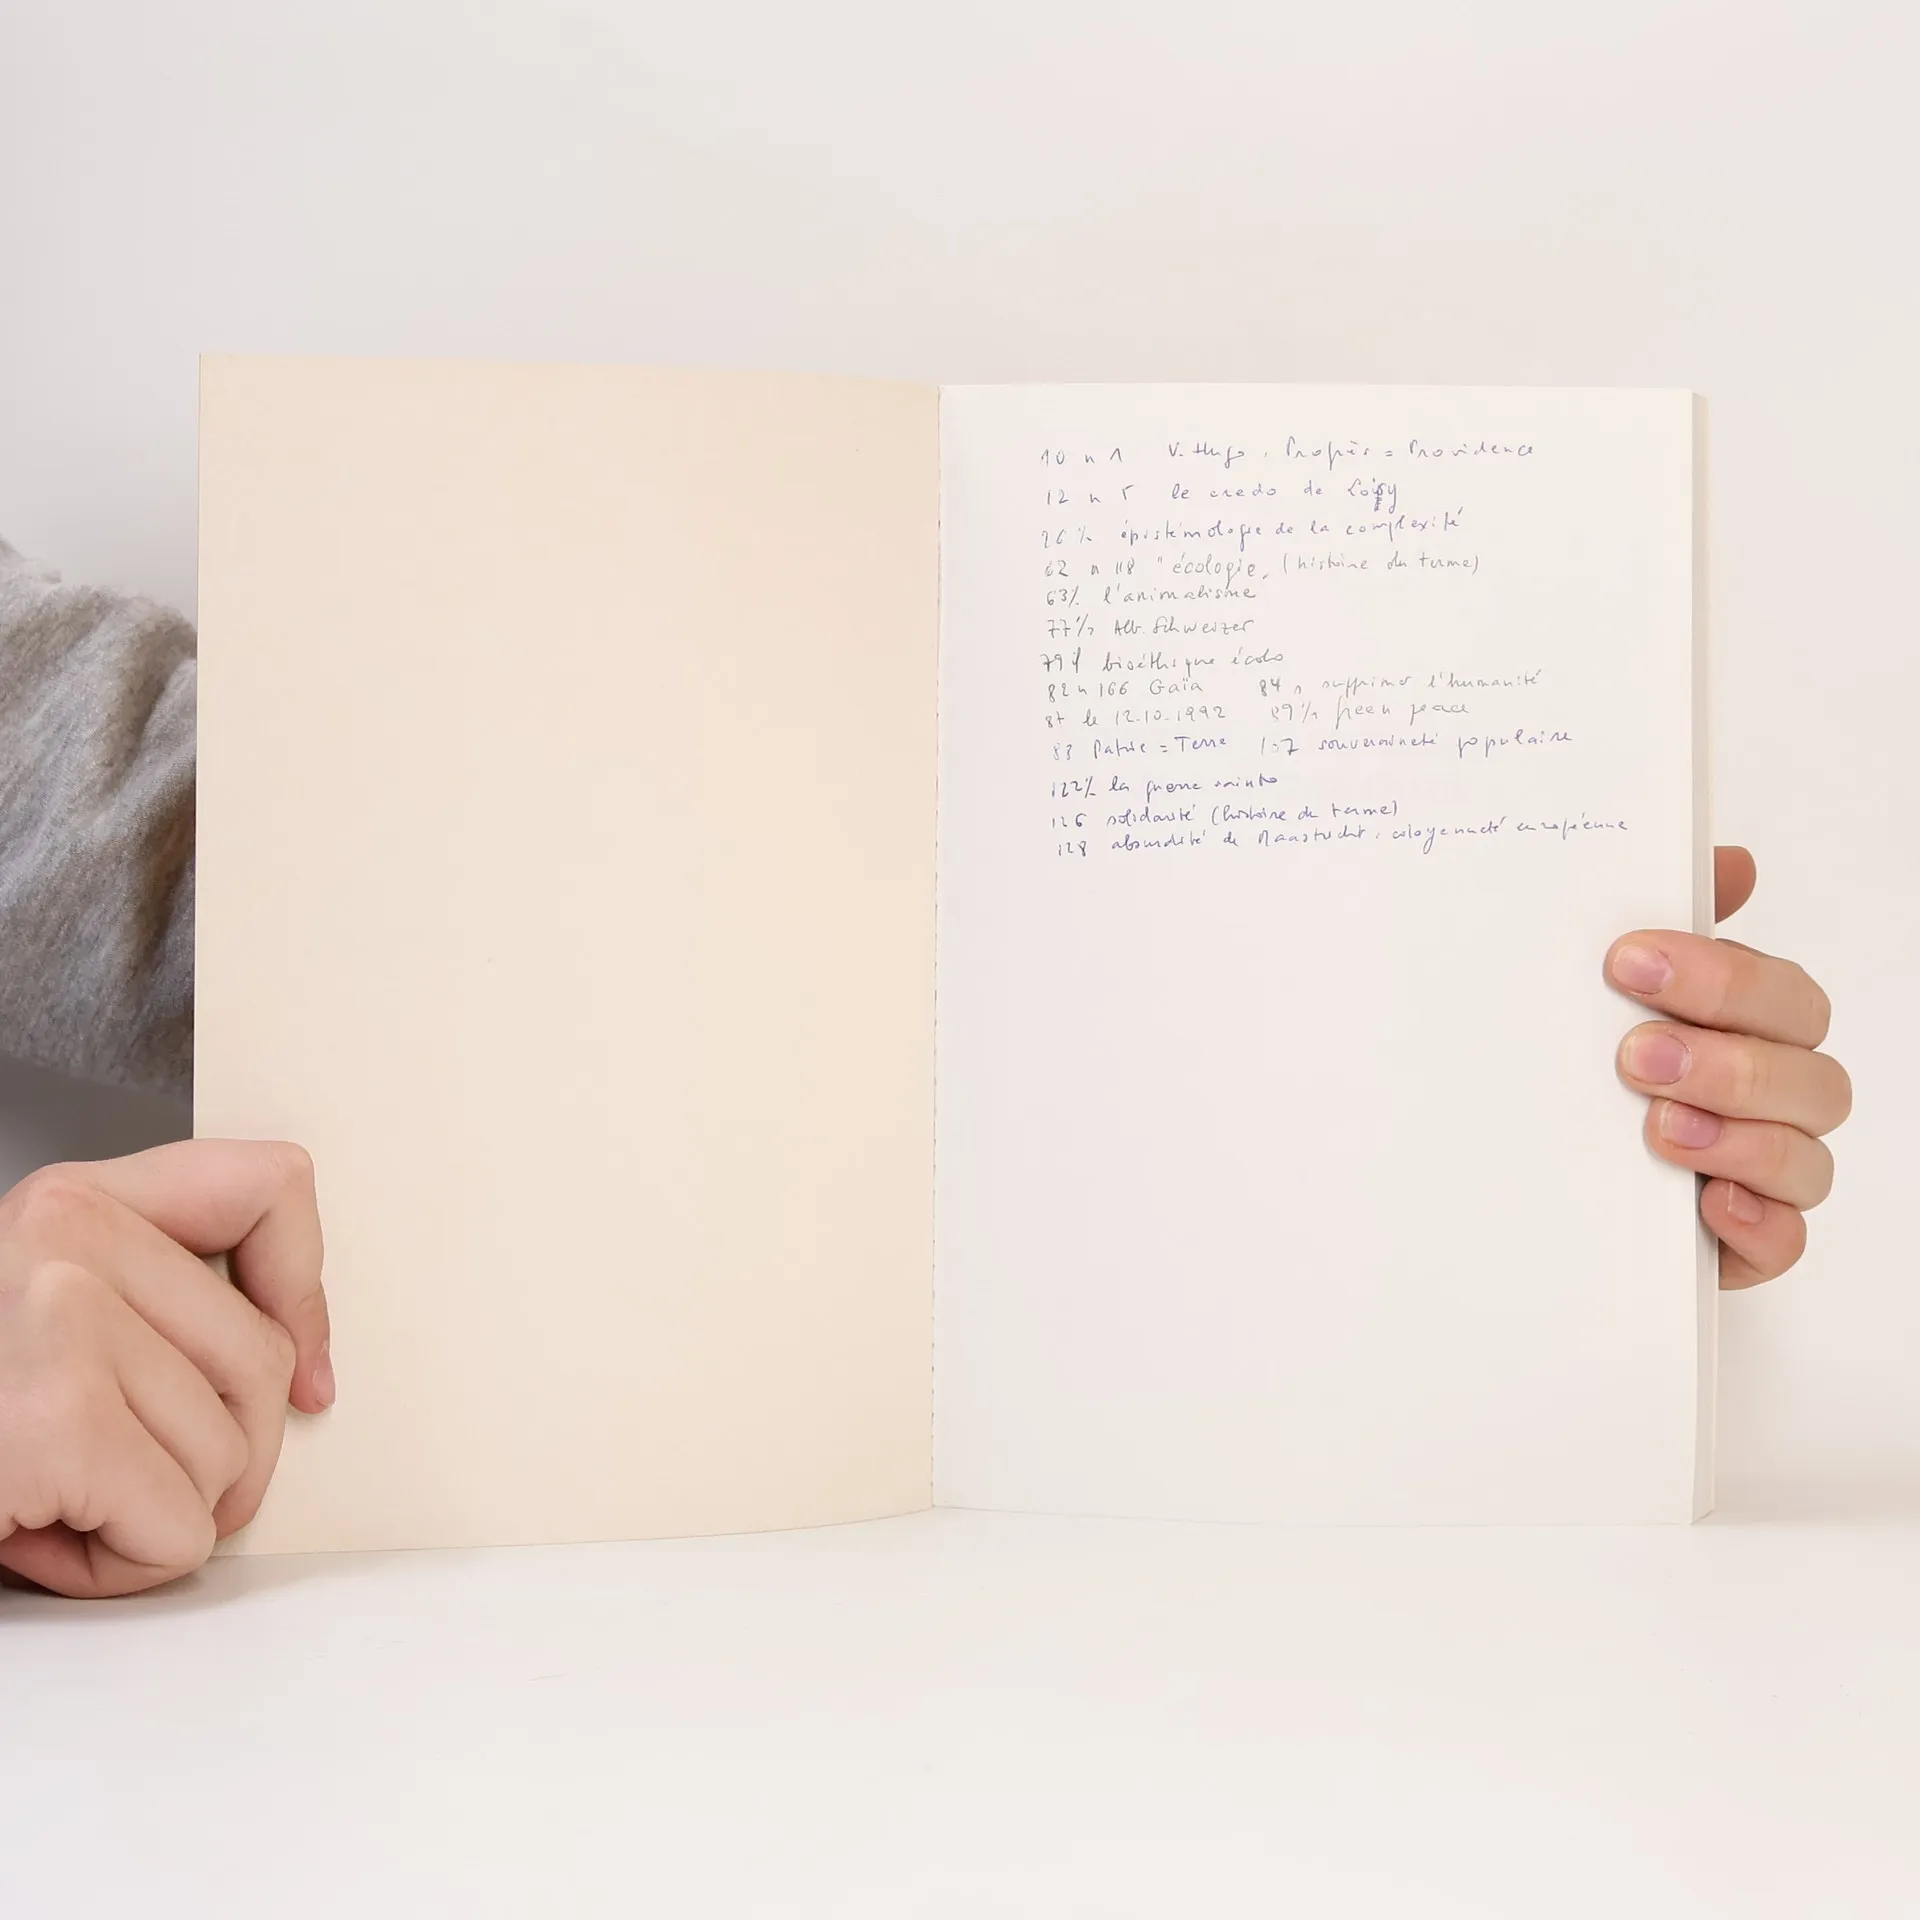 10 n 1 V. Hugo : Progrès = Providence
12 n 5 le credo de Loisy
26 % épistémologie de la complexité
62 n 118 "écologie" (histoire du terme)
63 % l'animalisme
77 % Alb. Schweizer
79 bioéthique écolo
82 n 166 Gaïa 84 supprimer l'humanité
87 le 12.10.1992 89 % green peace
83 Patrie = Terre 107 souveraineté populaire
122 % la guerre sainte
126 solidarité (histoire du terme)
128 absurdité de Maastricht : citoyenneté européenne